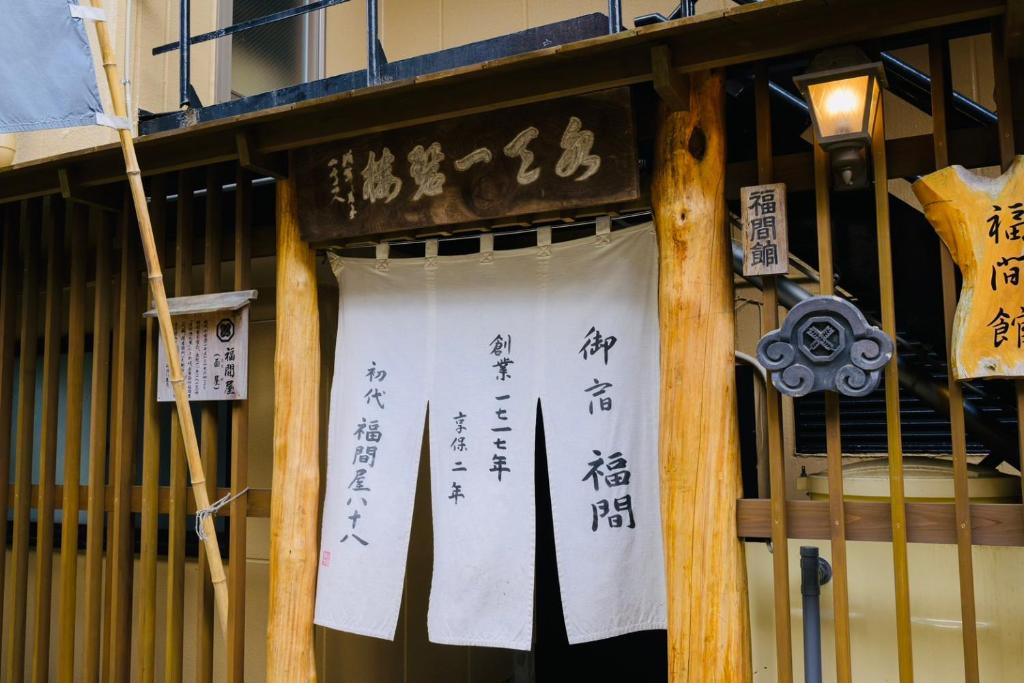 水天一碧楼
御宿 福間
創業 一七一七年
享保二年
初代 福間屋八十八
福間館
福間館
福間屋